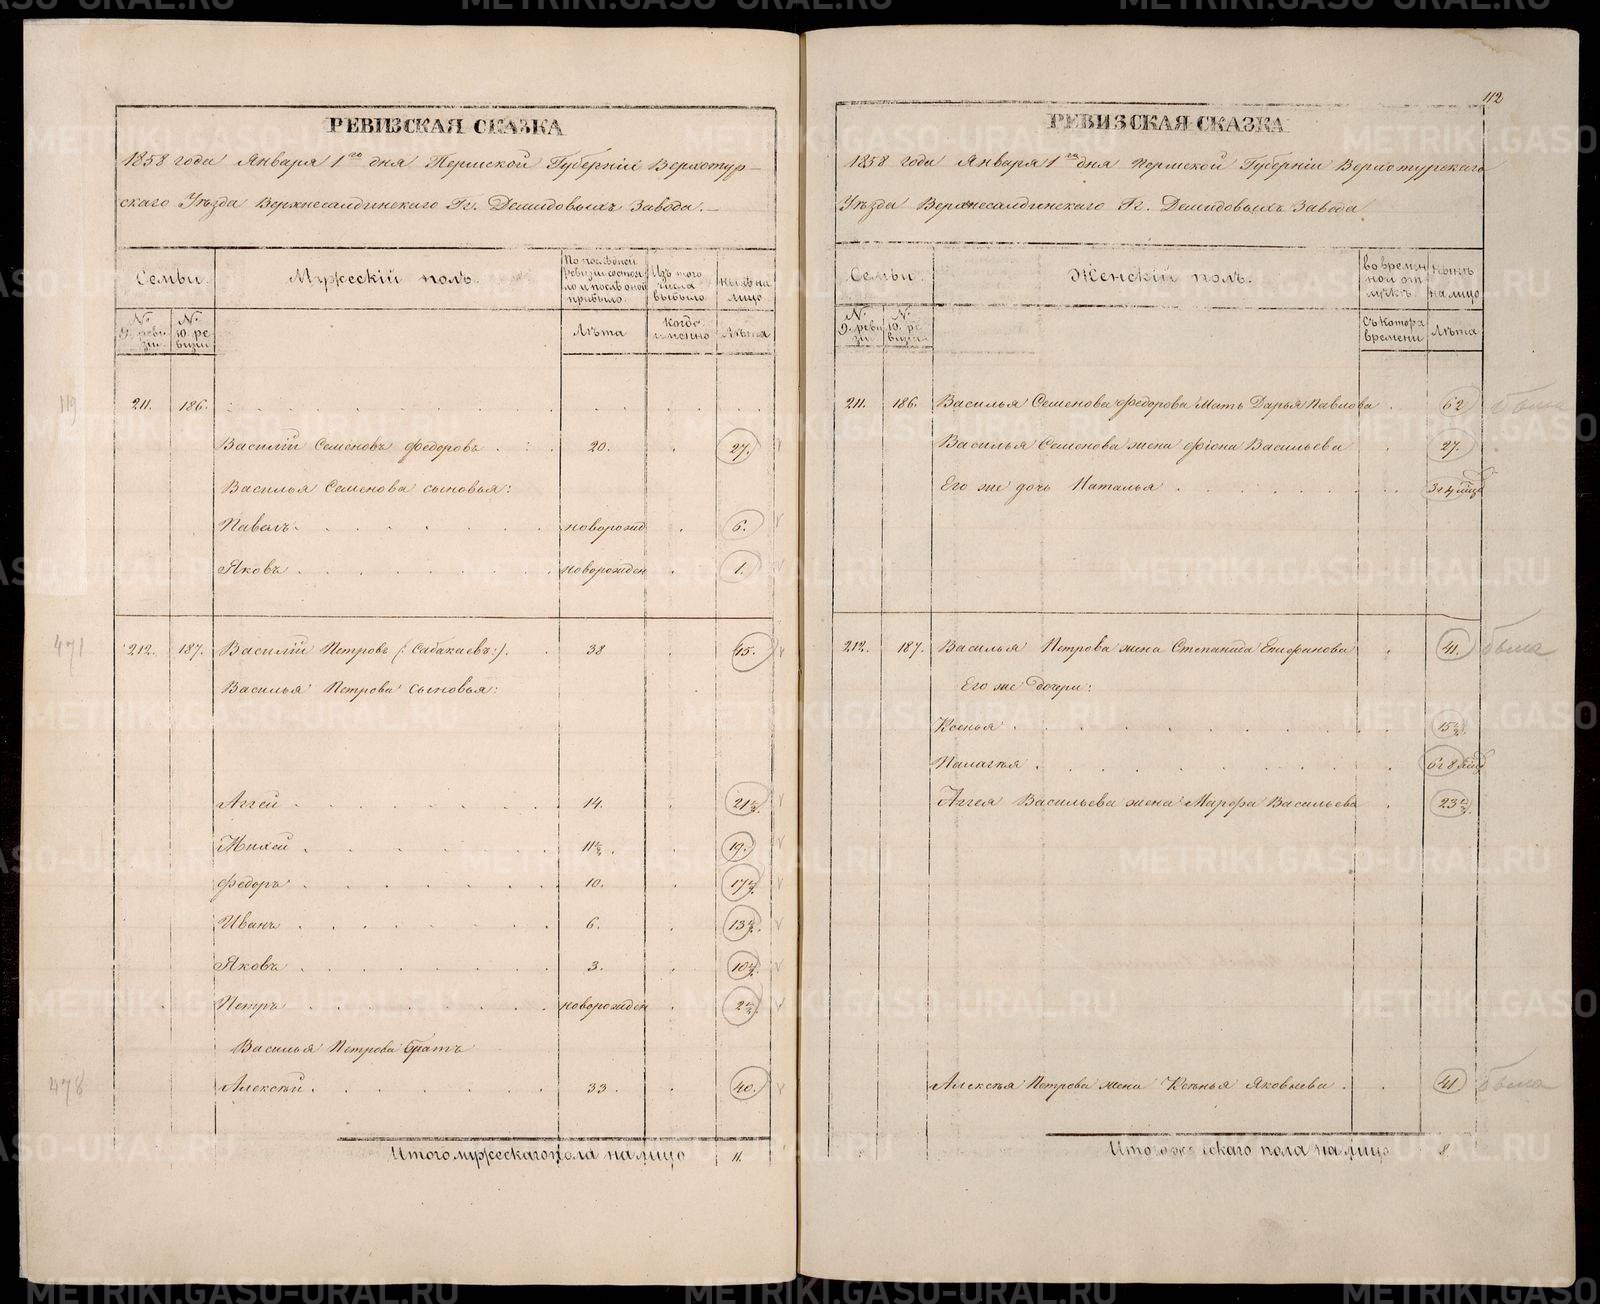 РЕВИЗСКАЯ СКАЗКА
1858 года Января 1го дня Пермской Губерніи Верхотур-
скаго Уѣзда Верхнесалдинскаго Гг. Демидовыхъ Завода.
Семьи. Мужескій полъ. По послѣдней ревизіи состояло и послѣ оной прибыло. Изъ того числа выбыло Нынѣ на лицо
№ 9. ревизіи. № 10. ревизіи Лѣта Когда именно Лѣта
113
211. 186.
Василій Семеновъ Федоровъ 20. 27.
Василья Семенова сыновья:
Павелъ новорожд 6.
Яковъ новорожден 1.
471
212. 187. Василій Петровъ (:Сабакаевъ:) 38 45.
Василья Петрова сыновья:
Аггей 14. 21½
Михей 11½ 19.
Федоръ 10. 17½
Иванъ 6. 13½
Яковъ 3. 10½
Петръ новорожден 2½
Василья Петрова братъ
478
Алексѣй 33. 40.
Итого мужескаго пола на лицо 11.
112
РЕВИЗСКАЯ СКАЗКА
1858 года Января 1го дня Пермской Губерніи Верхотурскаго
Уѣзда Верхнесалдинскаго Гг. Демидовыхъ Завода
Семьи. Женскій полъ. во временной отлучкѣ нынѣ на лицо
№ 9. ревизіи № 10. ревизіи Съ котора времени Лѣта
211. 186. Василья Семенова Федорова Мать Дарья Павлова 62 была
Василья Семенова жена Фіона Васильева 27.
Его же дочь Наталья 3 г 4 мѣся
212. 187. Василья Петрова жена Степанида Епифанова 41. была
Его же дочери:
Ксенья 15½
Палагея 6 г 8 мѣся
Аггея Васильева жена Марфа Васильева 23½
Алексѣя Петрова жена Ксенья Яковлева 41 была
Итого женскаго пола на лицо 8
METRIKI.GASO-URAL.RU